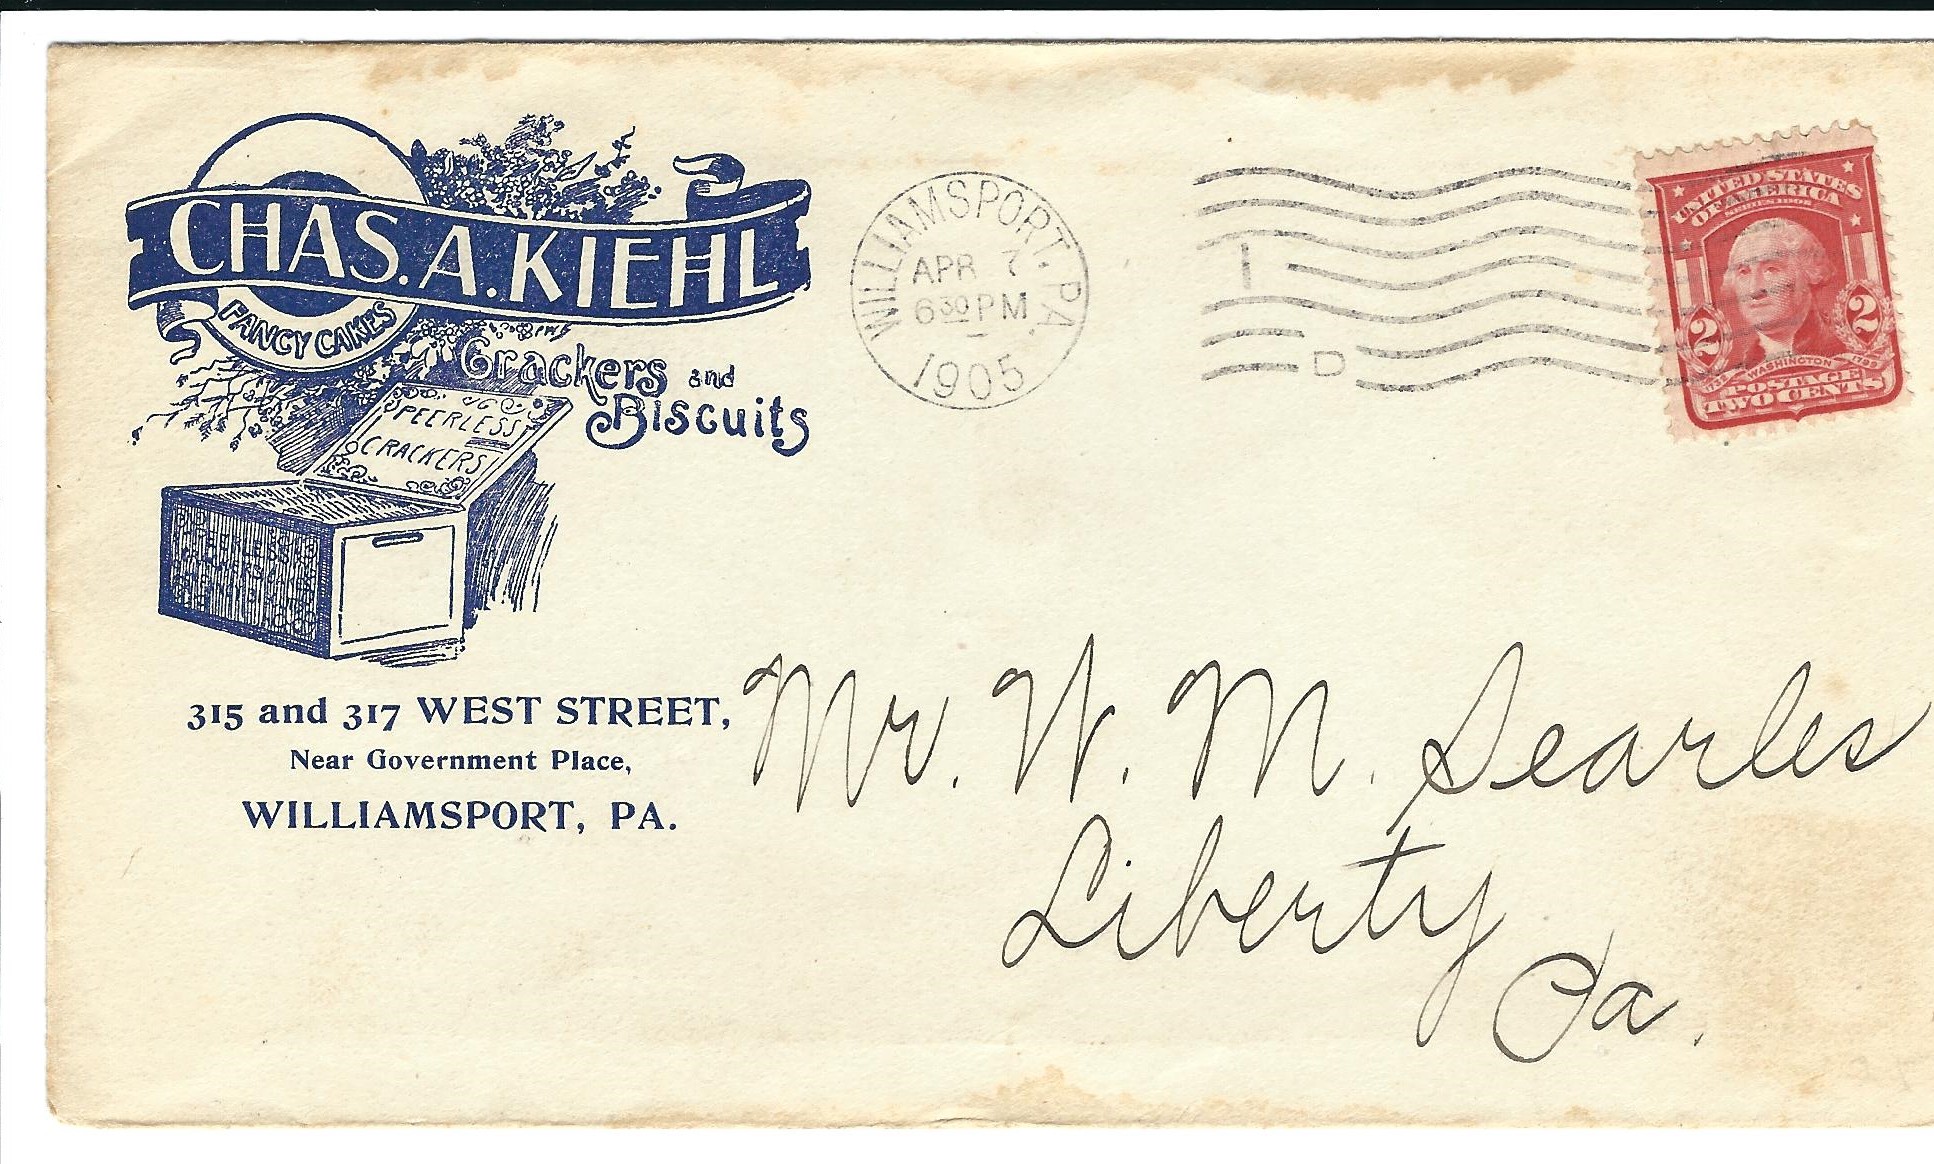 CHAS. A. KIEHL
FANCY CAKES
Crackers and
Biscuits
PEERLESS
CRACKERS
315 and 317 WEST STREET,
Near Government Place,
WILLIAMSPORT, PA.
WILLIAMSPORT, PA.
APR 7
6 30 PM
1905
I
D
UNITED STATES
OF AMERICA
SERIES 1902
2 2
1732 WASHINGTON 1799
POSTAGE
TWO CENTS
Mr. W. M. Searles
Liberty
Pa.